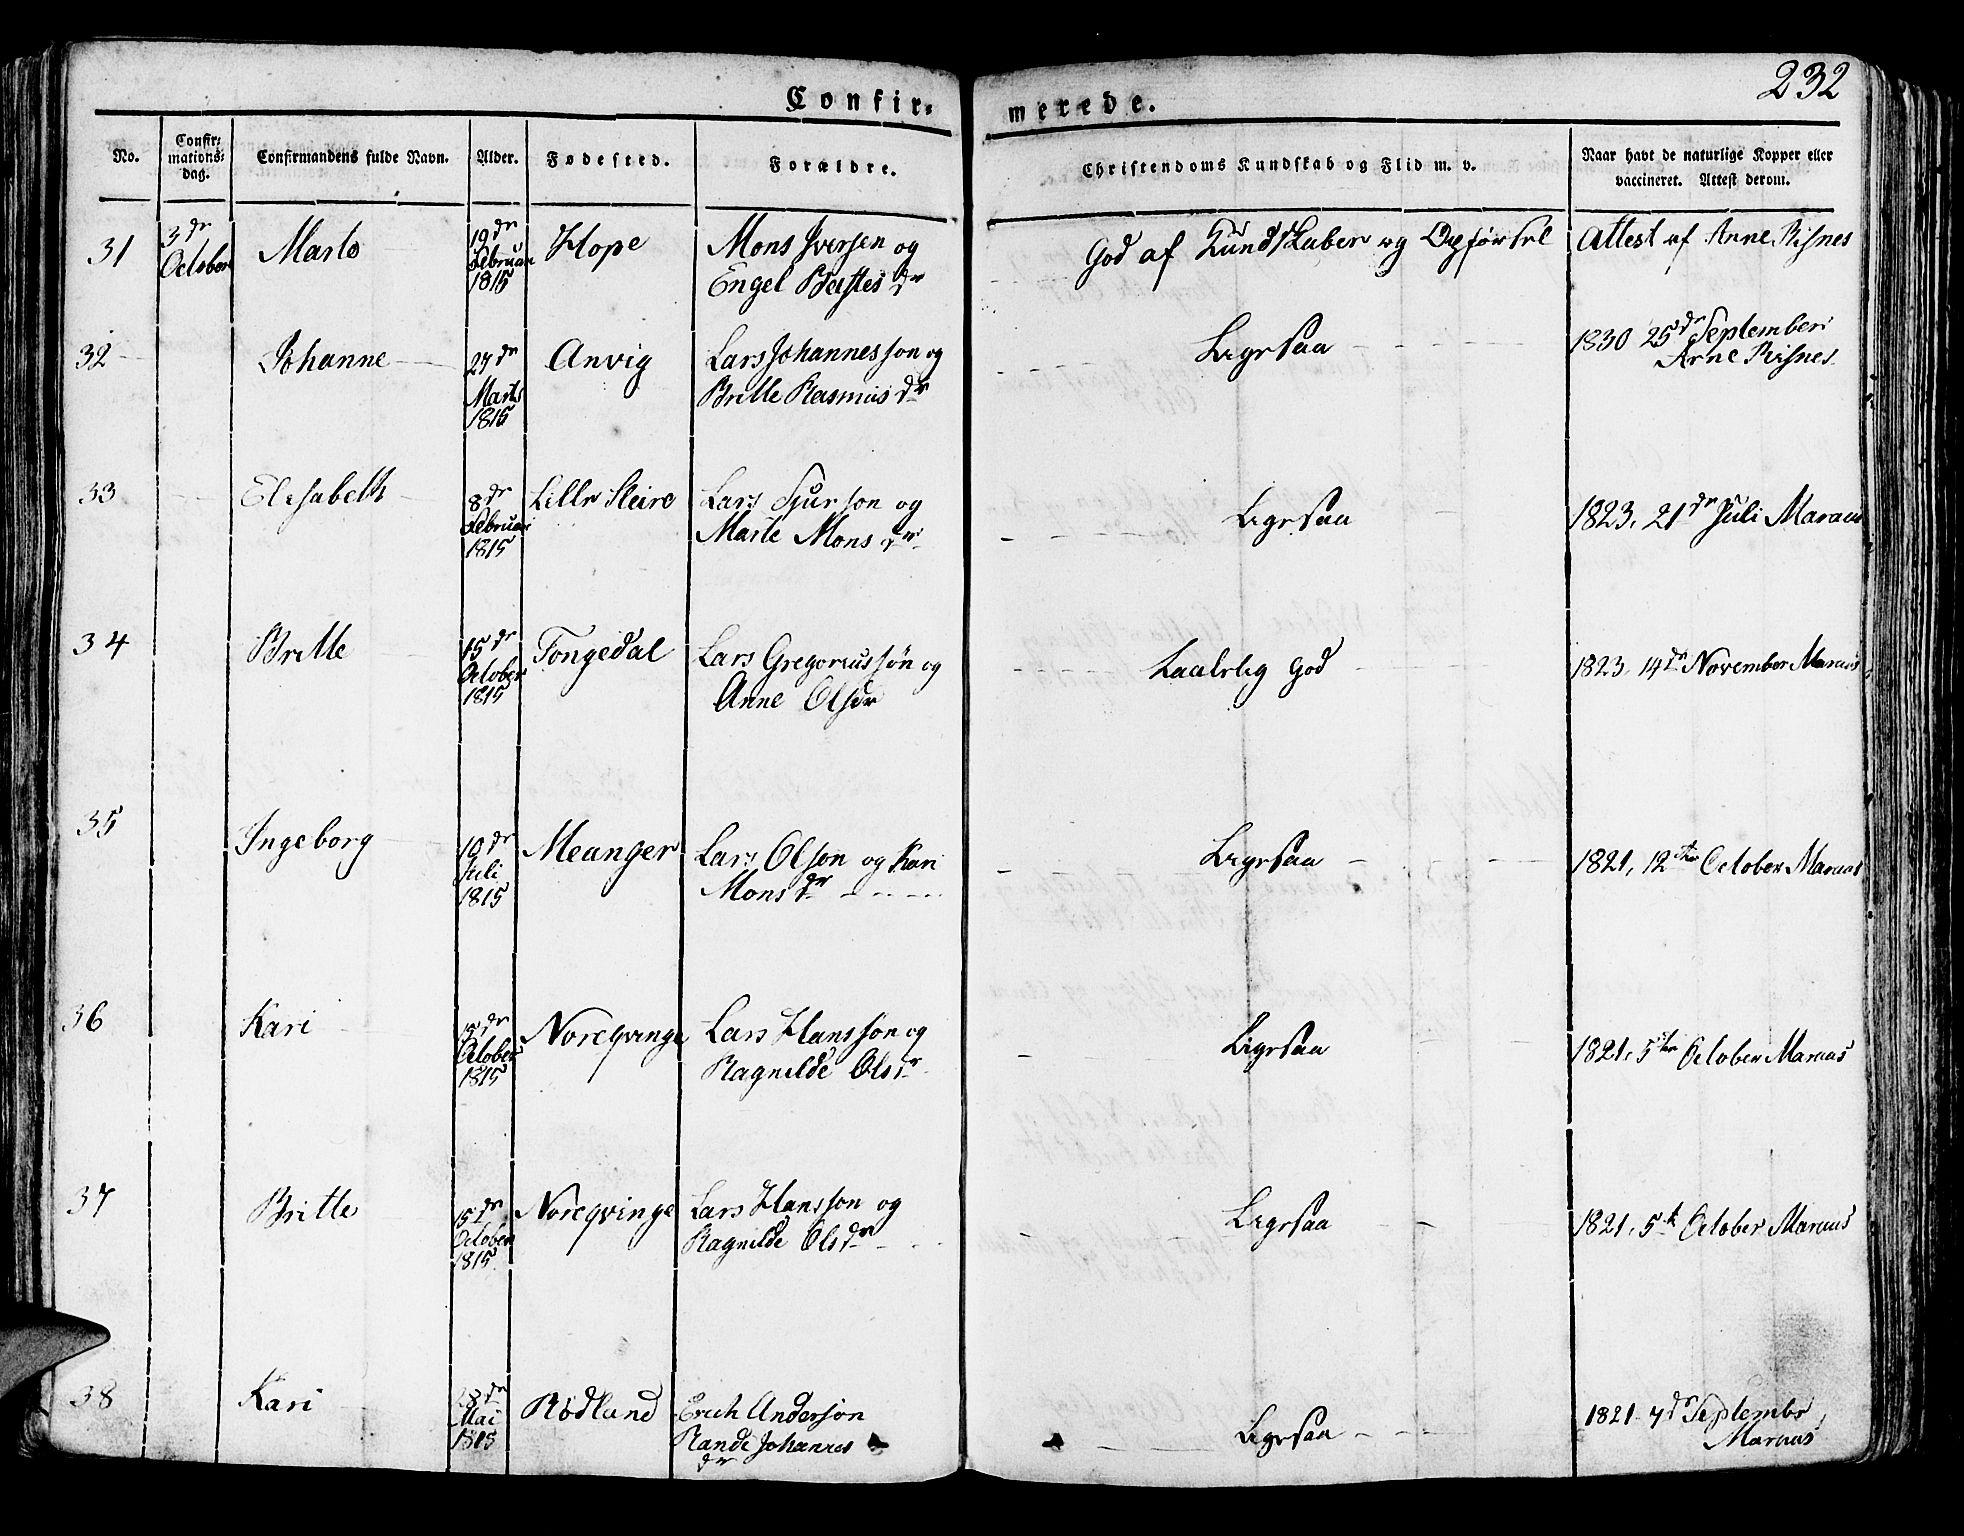 232
Confir- merede.
No. Confir- mations- dag. Confirmandens fulde Navn. Alder. Fødested. Forældre. Christendoms Kundskab og Flid m. v. Naar havt de naturlige Kopper eller vaccineret. Attest derom.
31 3dr October Marte 19dr Februar 1815 Hope Mons Iversen og God af Kundskaber og Opførsel Attest af Arne Risnes
Engel Bastes dr
32 Johanne 27dr Marts 1815 Anvig Lars Johannesson og Ligesaa 1830 25dr September
Britte Rasmus dr Arne Risnes
33 Elisabeth 8dr Februar 1815 Lille Steire Lars Sjurson og Ligesaa 1823, 21dr Juli Maraus
Marte Mons dr
34 Britte 15dr October 1815 Tongedal Lars Gregoriussøn og Taalelig God 1823, 14dr November Maraus
Anne Olsdr
35 Ingeborg 10dr Juli 1815 Meanger Lars Olson og Kari Ligesaa 1821, 12ter October Maraas
Mons dr
36 Kari 15dr October 1815 Noreqvinge Lars Hansson og Ligesaa 1821, 5ter October Maraas
Ragnilde Olsdr
37 Britte 15dr October 1815 Noreqvinge Lars Hansson og Ligesaa 1821, 5te October Maraus
Ragnilde Olsdr
38 Kari 28dr Mai 1815 Rødland Erich Anderson Ligesaa 1821 7dr Septembr
Rande Johannes dr Maraus